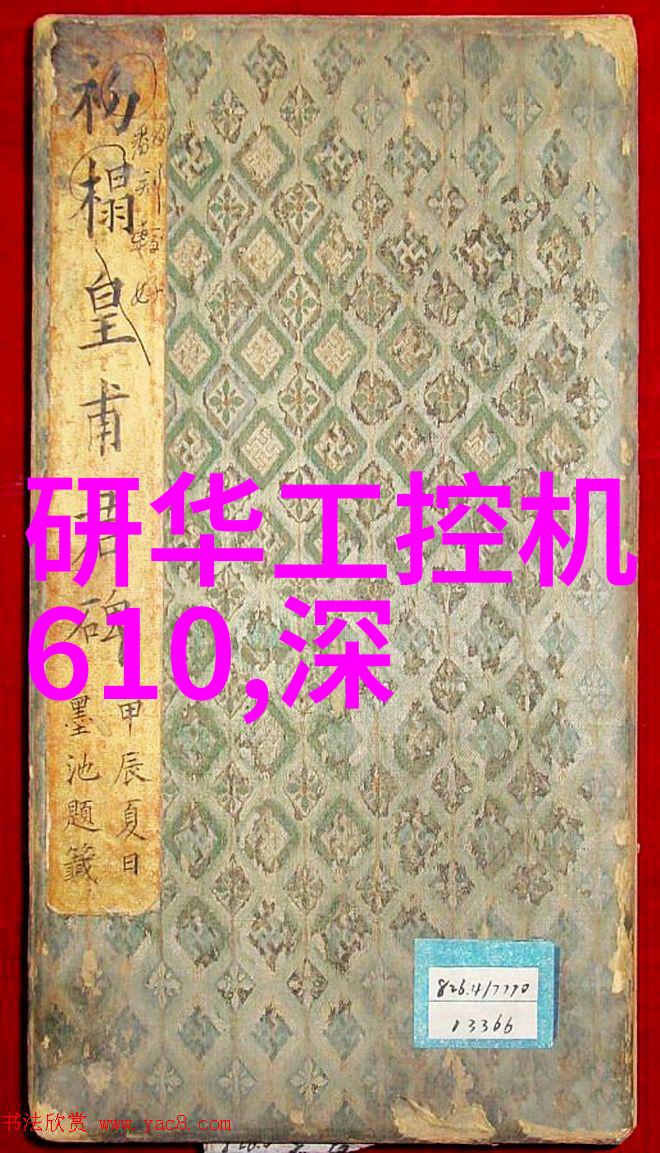 初榻皇甫君碑
甲辰夏日
墨池題籤
研华工控机
610,深
826.4/7770
13366
书法欣赏 www.yac8.com